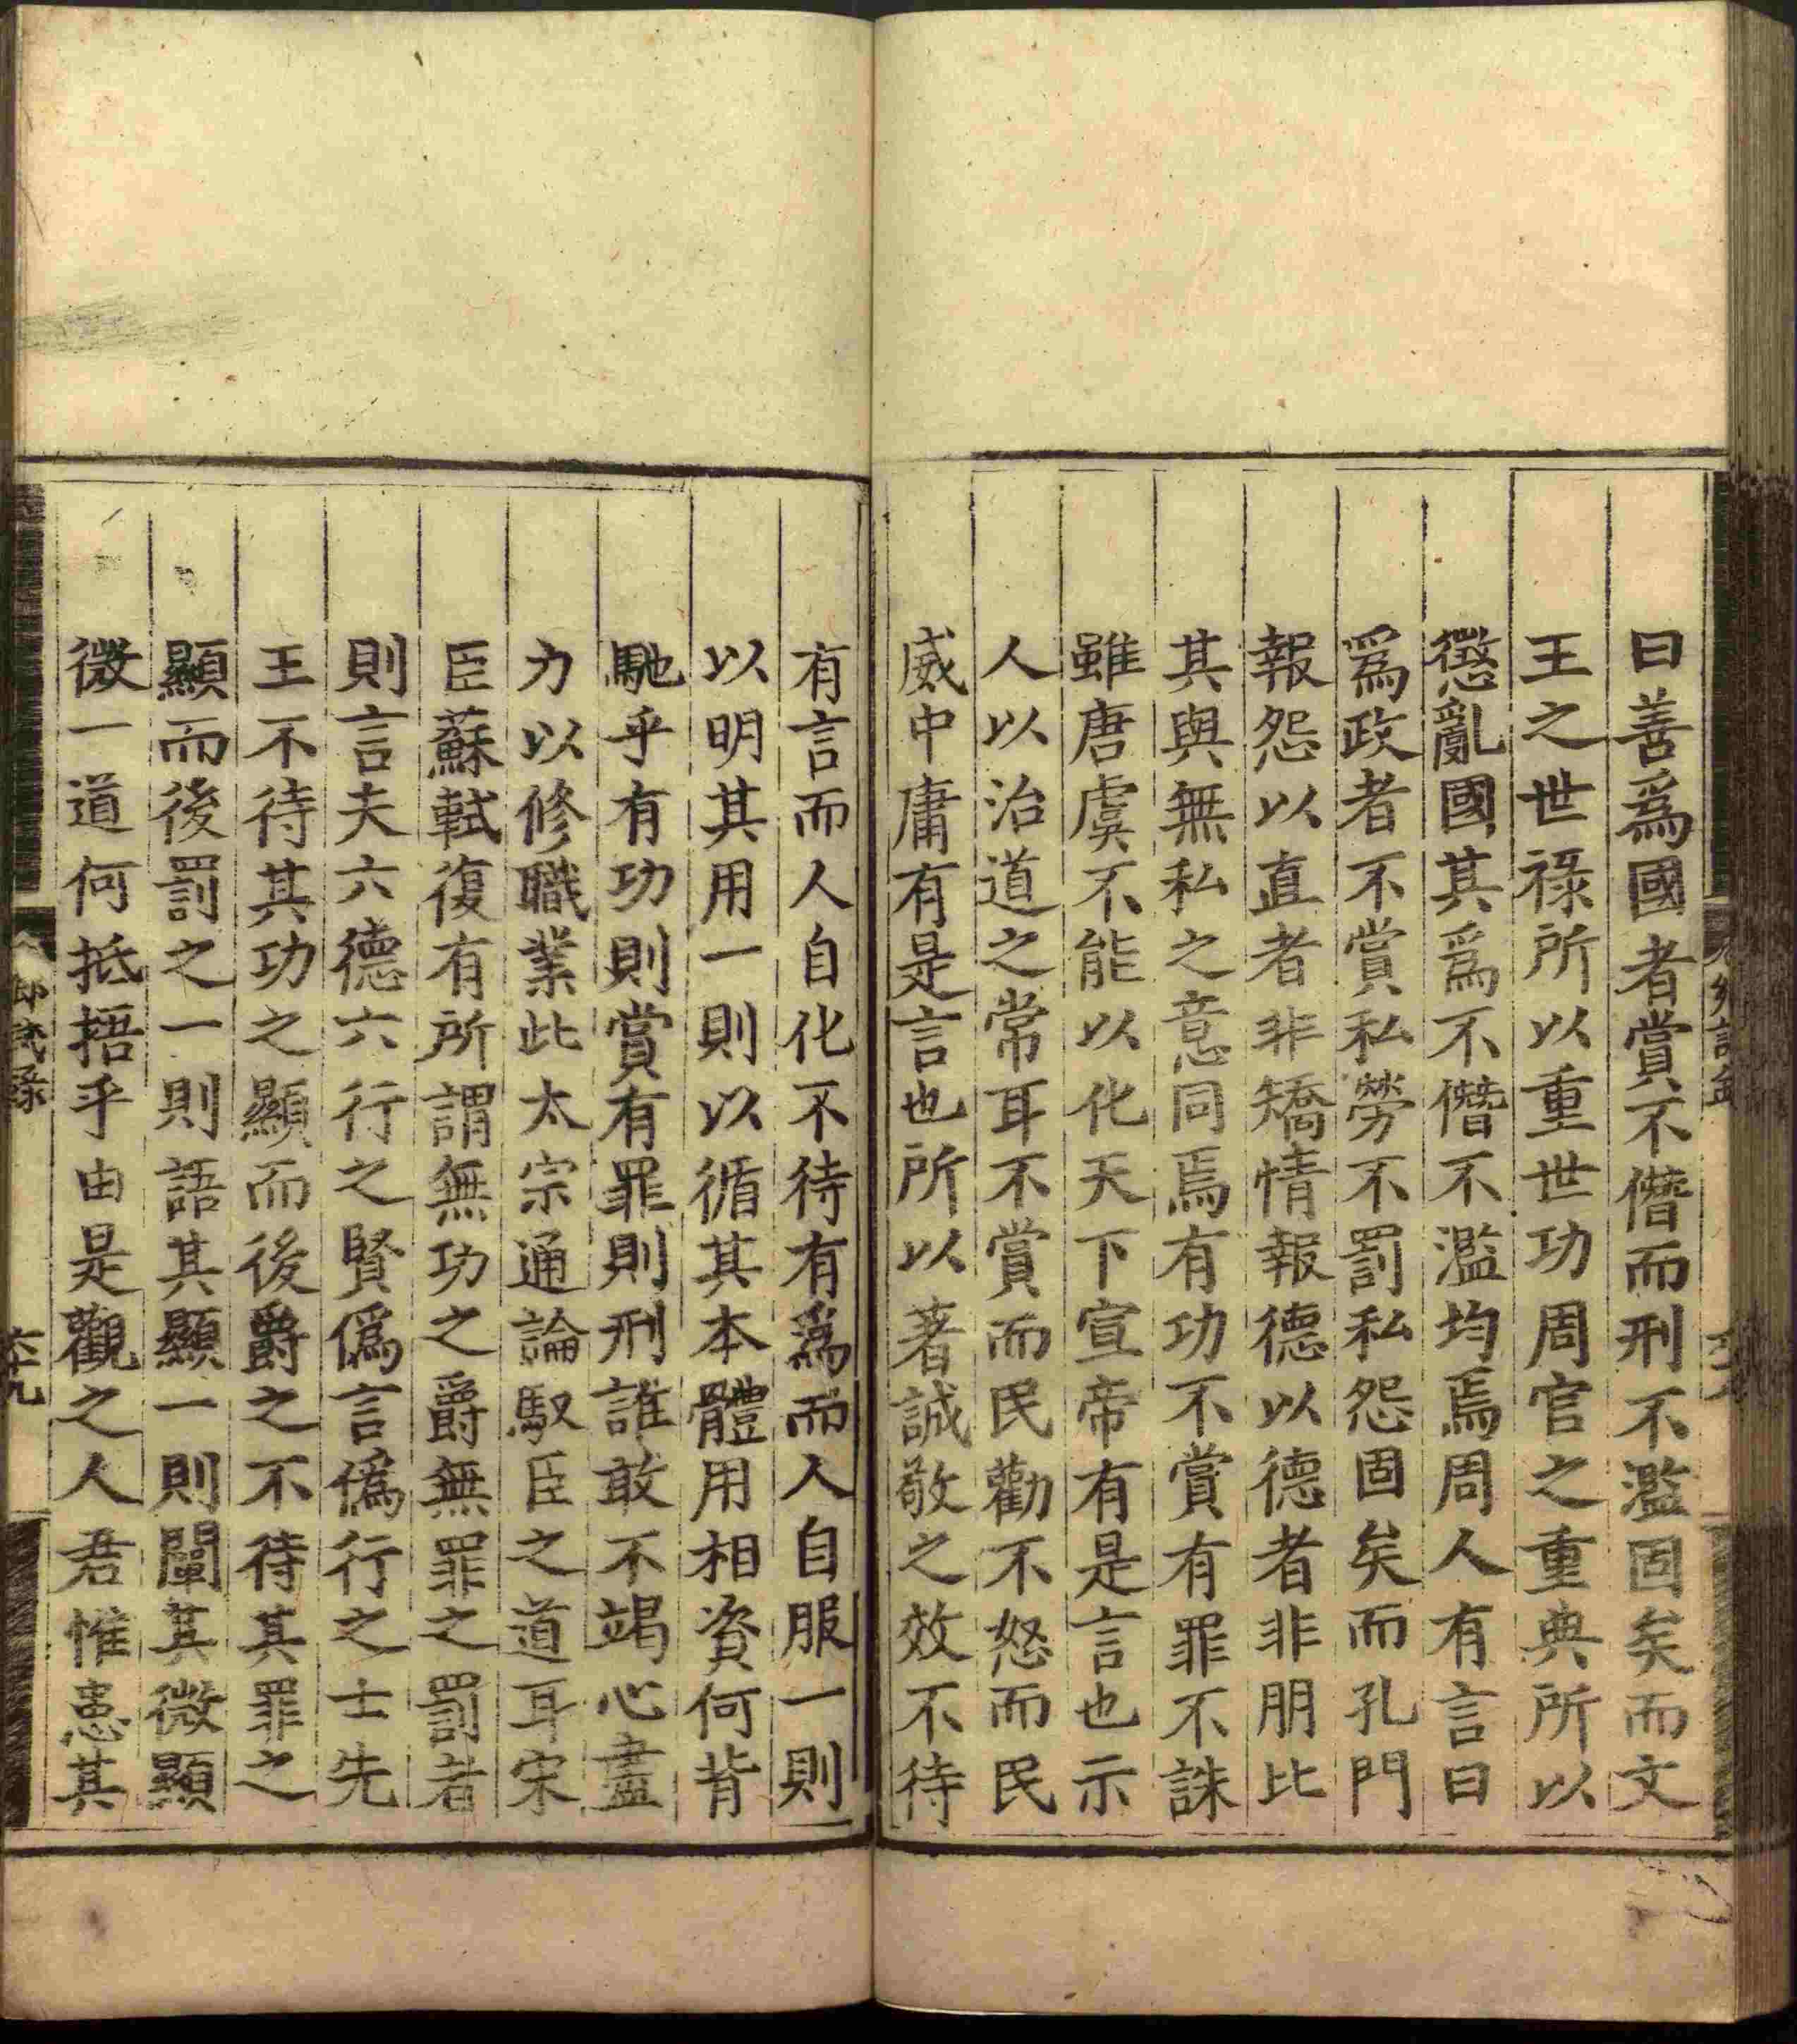 曰善爲國者賞不僭而刑不濫固矣而文
王之世祿所以重世功周官之重典所以
懲亂國其爲不僭不濫均焉周人有言曰
爲政者不賞私勞不罰私怨固矣而孔門
報怨以直者非矯情報德以德者非朋比
其與無私之意同焉有功不賞有罪不誅
雖唐虞不能以化天下宣帝有是言也示
人以治道之常耳不賞而民勸不怒而民
威中庸有是言也所以著誠敬之效不待
有言而人自化不待有爲而人自服一則
以明其用一則以循其本體用相資何背
馳乎有功則賞有罪則刑誰敢不竭心盡
力以修職業此太宗通論馭臣之道耳宋
臣蘇軾復有所謂無功之爵無罪之罰者
則言夫六德六行之賢僞言僞行之士先
王不待其功之顯而後爵之不待其罪之
顯而後罰之一則語其顯一則闡其微顯
微一道何抵捂乎由是觀之人君惟患其
六十九